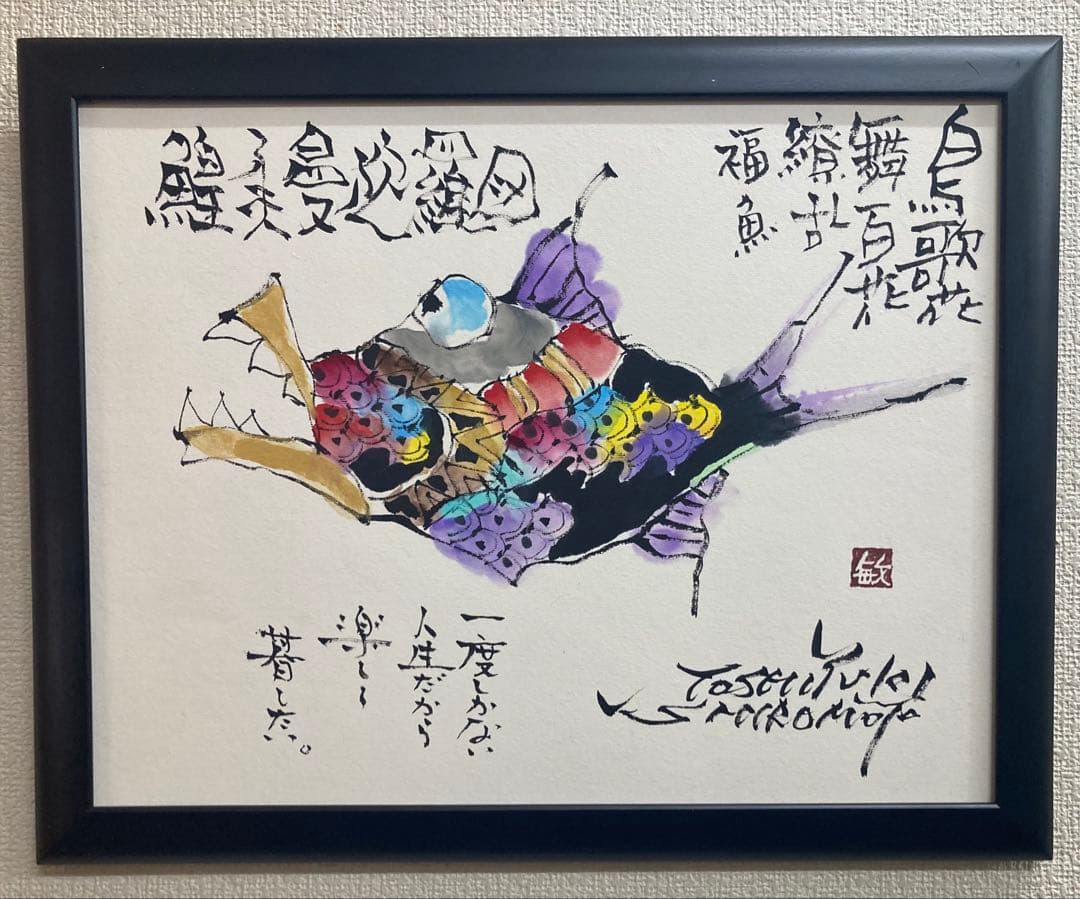 鳥歌花
舞百花
繚乱
福魚
曼陀羅図
一度しかない
人生だから
楽しく
暮したい。
敏
TOSHIYUKI
SHIROMOTO